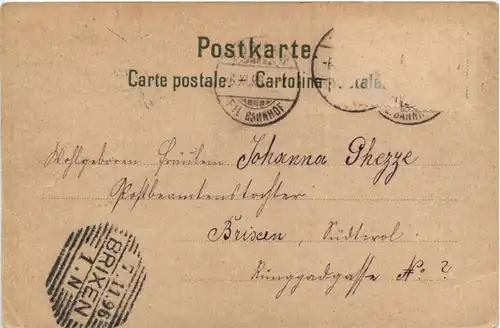 Postkarte.
Carte postale. Cartolina postale.
FIL. BAHNHOF
BAHNHOF
Wohlgeboren Fräulein Johanna Ghezze
Postbeamtenstochter
Brixen, Südtirol.
Runggadgasse No. ?
7. 11. 96
BRIXEN
1. N